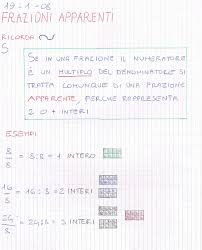 19-1-08
FRAZIONI APPARENTI
RICORDA
SE IN UNA FRAZIONE IL NUMERATORE
È UN MULTIPLO DEL DENOMINATORE SI
TRATTA COMUNQUE DI UNA FRAZIONE
APPARENTE, PERCHÈ RAPPRESENTA
2 O + INTERI
ESEMPI
8/8 = 8:8 = 1 INTERO
16/8 = 16:8 = 2 INTERI
24/8 = 24:8 = 3 INTERI